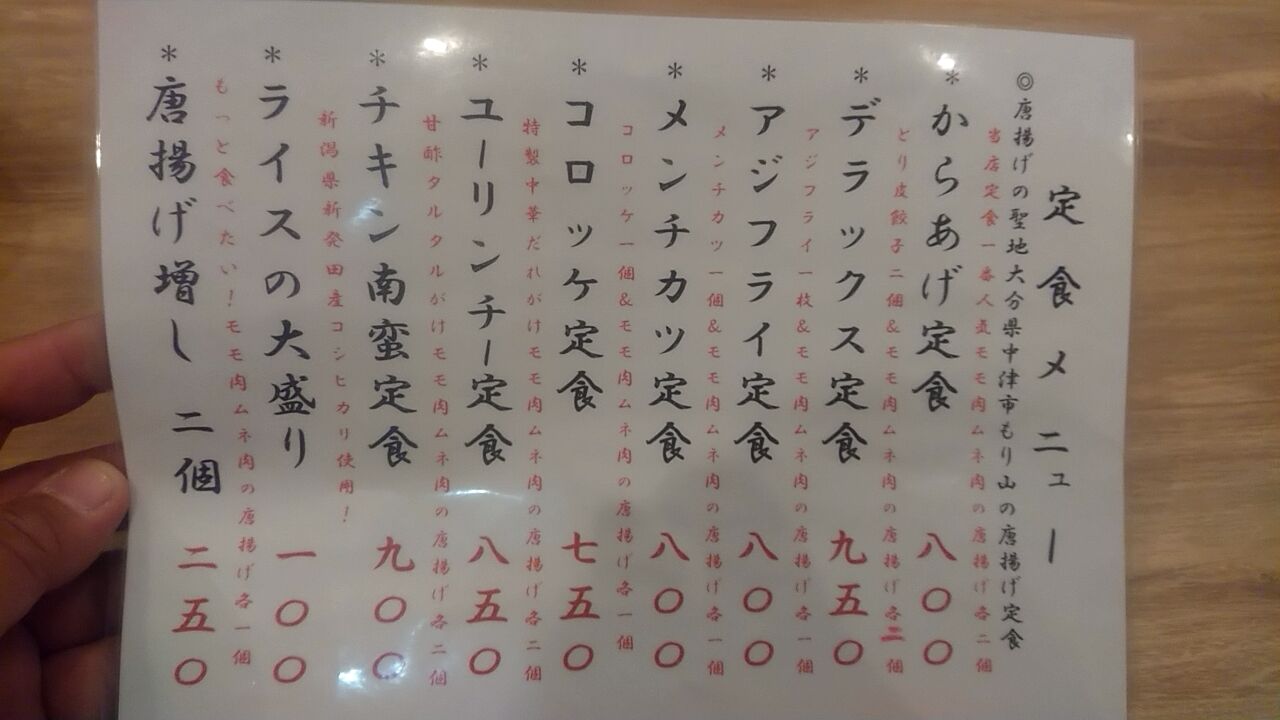 定食メニュー
◎唐揚げの聖地大分県中津市もり山の唐揚げ定食
当店定食一番人気モモ肉ムネ肉の唐揚げ各二個
*からあげ定食 八〇〇
とり皮餃子二個&モモ肉ムネ肉の唐揚げ各二個
*デラックス定食 九五〇
アジフライ一枚&モモ肉ムネ肉の唐揚げ各一個
*アジフライ定食 八〇〇
メンチカツ一個&モモ肉ムネ肉の唐揚げ各一個
*メンチカツ定食 八〇〇
コロッケ一個&モモ肉ムネ肉の唐揚げ各一個
*コロッケ定食 七五〇
特製中華だれがけモモ肉ムネ肉の唐揚げ各二個
*ユーリンチー定食 八五〇
甘酢タルタルがけモモ肉ムネ肉の唐揚げ各二個
*チキン南蛮定食 九〇〇
新潟県新発田産コシヒカリ使用!
*ライスの大盛り 一〇〇
もっと食べたい!モモ肉ムネ肉の唐揚げ各一個
*唐揚げ増し 二個 二五〇